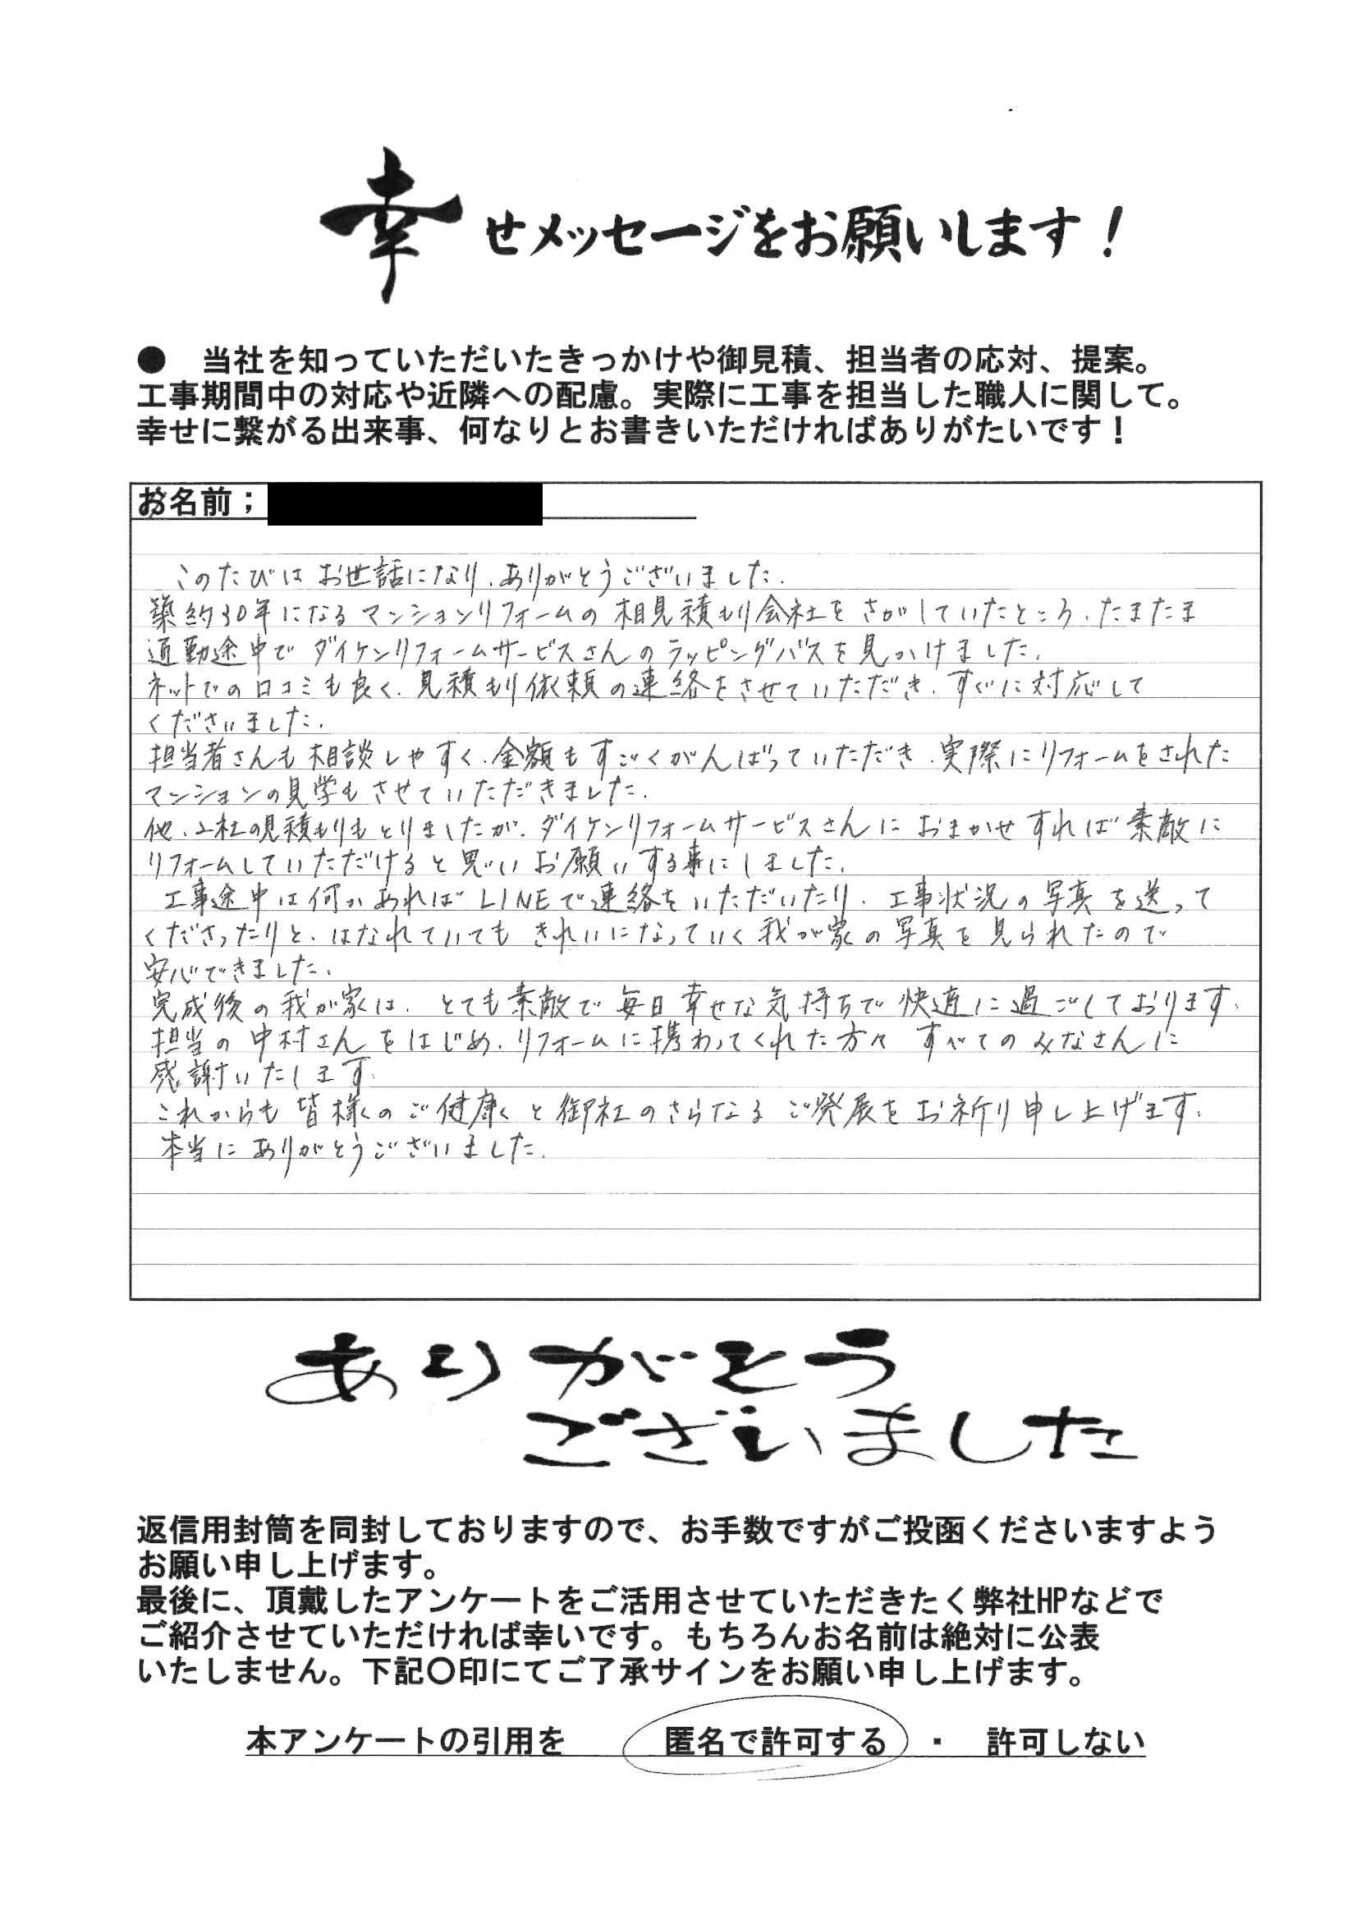 幸せメッセージをお願いします！
● 当社を知っていただいたきっかけや御見積、担当者の応対、提案。
工事期間中の対応や近隣への配慮。実際に工事を担当した職人に関して。
幸せに繋がる出来事、何なりとお書きいただければありがたいです！
お名前；
このたびはお世話になり、ありがとうございました。
築約30年になるマンションリフォームの相見積もり会社をさがしていたところ、たまたま
通勤途中でダイケンリフォームサービスさんのラッピングバスを見かけました。
ネットでの口コミも良く、見積もり依頼の連絡をさせていただき、すぐに対応して
くださいました。
担当者さんも相談しやすく、金額もすごくがんばっていただき、実際にリフォームをされた
マンションの見学もさせていただきました。
他、2社の見積もりもとりましたが、ダイケンリフォームサービスさんにおまかせすれば素敵に
リフォームしていただけると思いお願いする事にしました。
工事途中は何かあればLINEで連絡をいただいたり、工事状況の写真を送って
くださったりと、はなれていてもきれいになっていく我が家の写真を見られたので
安心できました。
完成後の我が家は、とても素敵で毎日幸せな気持ちで快適に過ごしております。
担当の中村さんをはじめ、リフォームに携わってくれた方々すべてのみなさんに
感謝いたします。
これからも皆様のご健康と御社のさらなるご発展をお祈り申し上げます。
本当にありがとうございました。
ありがとう
ございました
返信用封筒を同封しておりますので、お手数ですがご投函くださいますよう
お願い申し上げます。
最後に、頂戴したアンケートをご活用させていただきたく弊社HPなどで
ご紹介させていただければ幸いです。もちろんお名前は絶対に公表
いたしません。下記〇印にてご了承サインをお願い申し上げます。
本アンケートの引用を 匿名で許可する ・ 許可しない